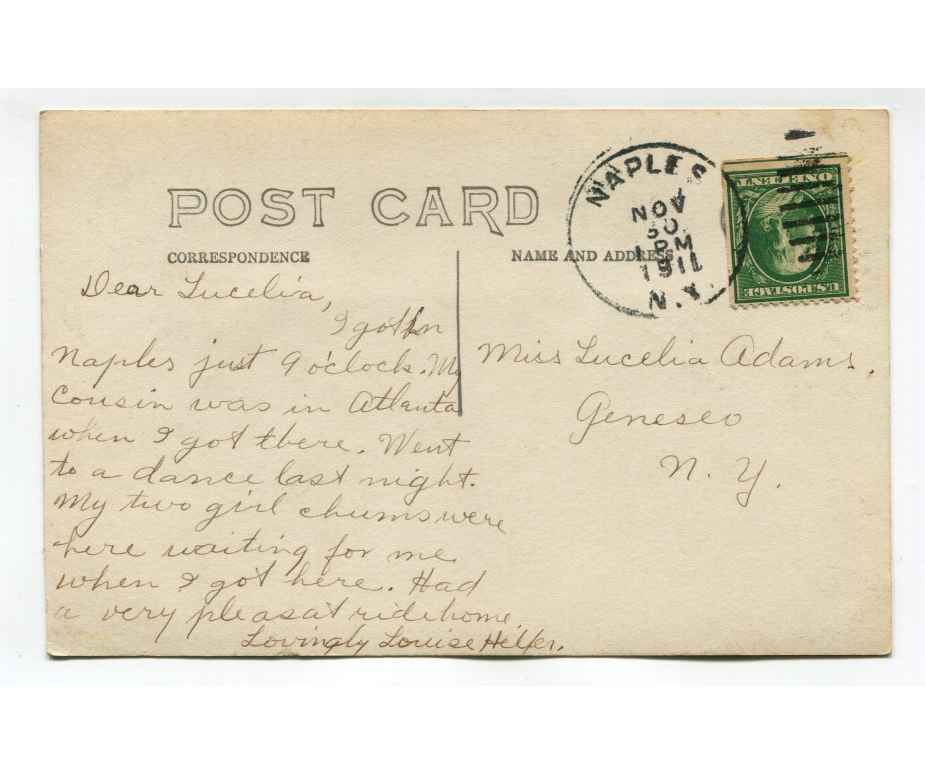 POST CARD
CORRESPONDENCE
NAME AND ADDRESS
NAPLES
NOV
30
1 PM
1911
N.Y.
ONE CENT
U.S. POSTAGE
Dear Lucelia,
I got in
Naples just 9 o'clock. My
Cousin was in Atlanta
when I got there. Went
to a dance last night.
My two girl chums were
here waiting for me
when I got here. Had
a very pleasat ride home
Lovingly Louise Helfer.
Miss Lucelia Adams.
Geneseo
N. Y.